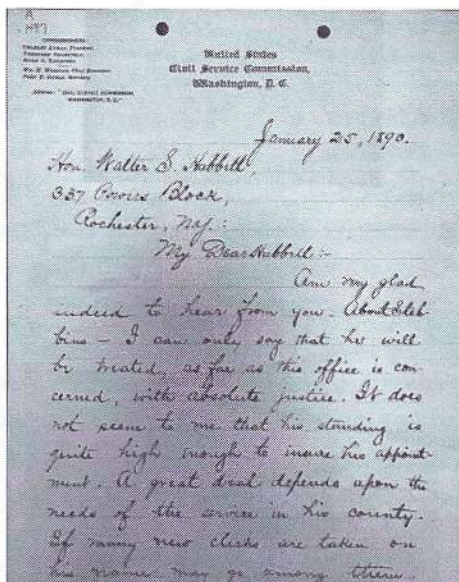 A
COMMISSIONERS:
Charles Lyman, President,
Theodore Roosevelt,
Hugh S. Thompson
United States
Civil Service Commission,
Washington, D. C.
January 25, 1890.
Hon. Walter S. Hubbell,
337 Powers Block,
Rochester, N.Y.:
My Dear Hubbell:-
Am my glad
indeed to hear from you. About Steb-
bins - I can only say that he will
be treated, as far as this office is con-
cerned, with absolute justice. It does
not seem to me that his standing is
quite high enough to insure his appoint-
ment. A great deal depends upon the
needs of the service in his county.
If many new clerks are taken on
his name may go among them